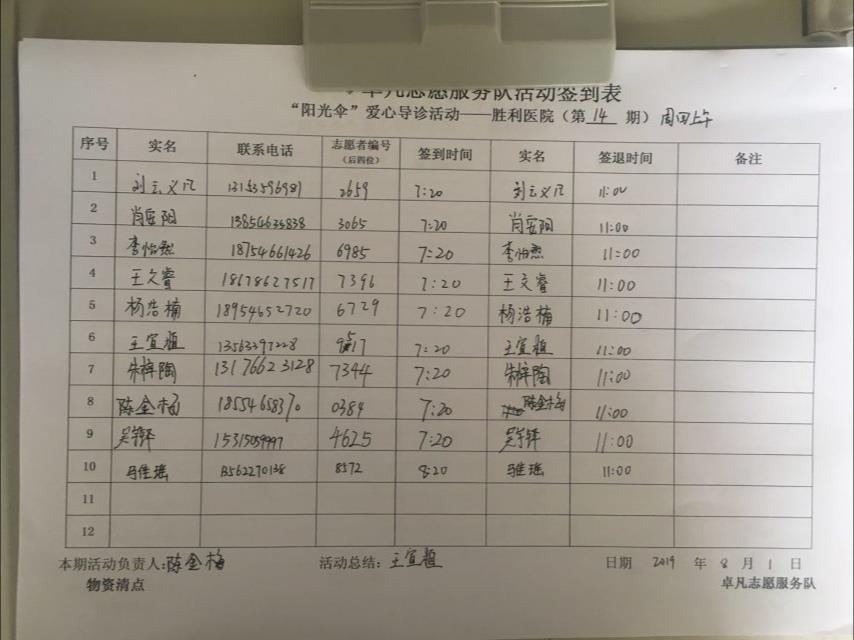 卓凡志愿服务队活动签到表
“阳光伞”爱心导诊活动——胜利医院（第 14 期）周四上午
序号 实名 联系电话 志愿者编号（后四位） 签到时间 实名 签退时间 备注
1 刘云义凡 2659 7:20 刘云义凡 11:00
2 肖安阳 13854634838 3065 7:20 肖安阳 11:00
3 李怡然 18754661426 6985 7:20 李怡然 11:00
4 王文睿 18678627517 7396 7:20 王文睿 11:00
5 杨浩楠 18954652720 6729 7:20 杨浩楠 11:00
6 王宜植 13563397228 7:20 王宜植 11:00
7 朱梓陶 13176623128 7344 7:20 朱梓陶 11:00
8 陈金梅 18554658370 0384 7:20 陈金梅 11:00
9 15315059997 4625 7:20 11:00
10 马维瑶 13562270138 8572 8:20 马维瑶 11:00
11
12
本期活动负责人:陈金梅 活动总结:王宜植 日期 2019 年 8 月 1 日
物资清点 卓凡志愿服务队